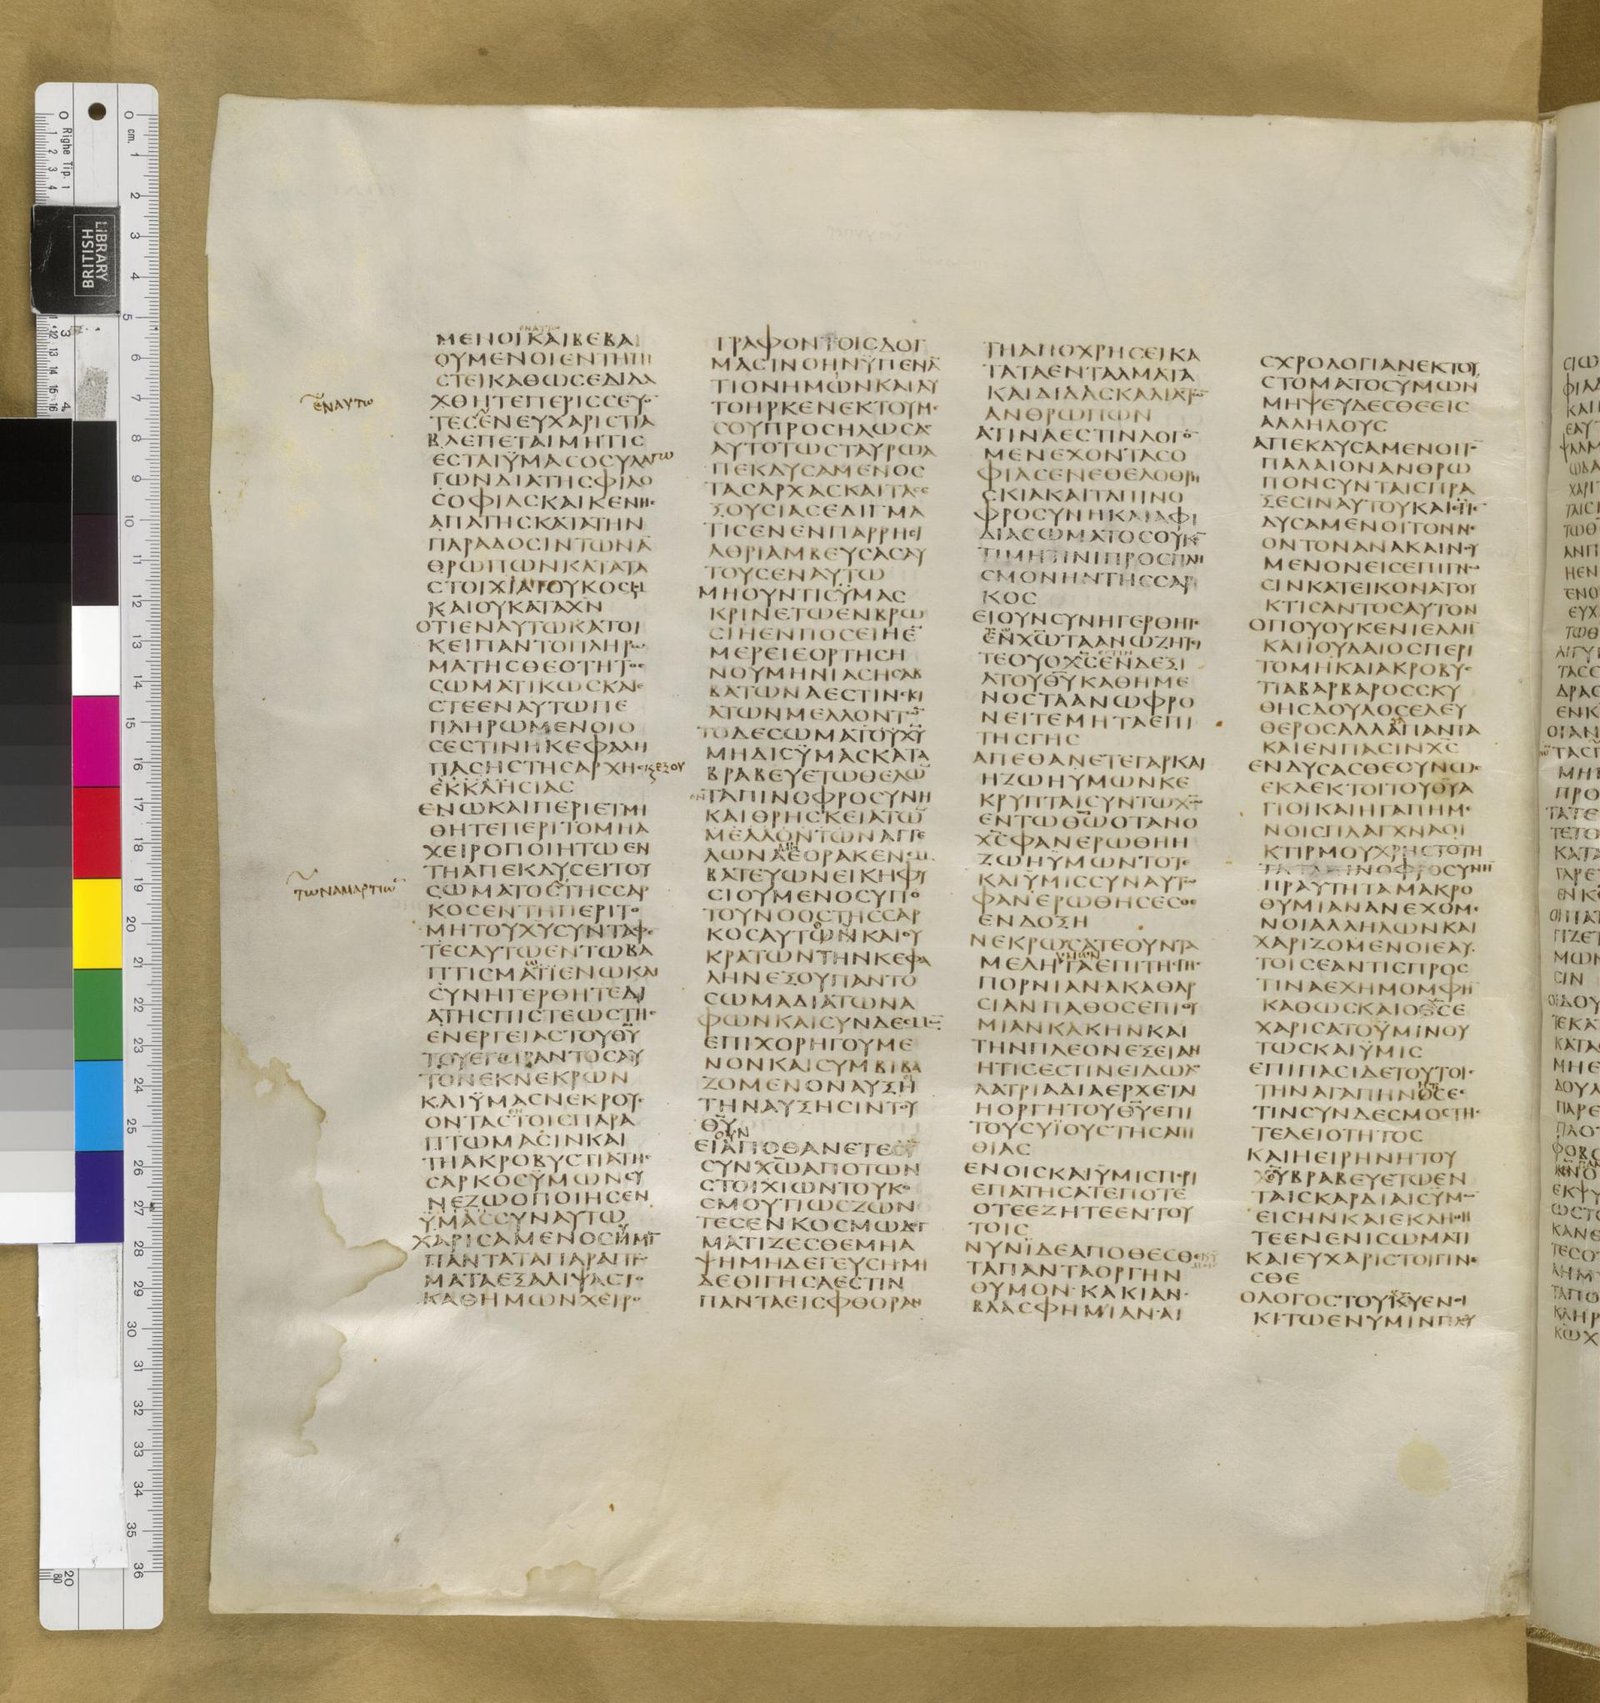 ΜΕΝΟΙΚΑΙΒΕΒΑΙ
ΟΥΜΕΝΟΙΕΝΤΗΠΙ
ΣΤΕΙΚΑΘΩΣΕΔΙΔΑ
ΧΘΗΤΕΠΕΡΙΣΣΕΥΟ
ΤΕΣΕΝΕΥΧΑΡΙΣΤΙΑ
ΒΛΕΠΕΤΑΙΜΗΤΙΣ
ΕΣΤΑΙΫΜΑΣΟΣΥΛΑΓΩ
ΓΩΝΔΙΑΤΗΣΦΙΛΟ
ΣΟΦΙΑΣΚΑΙΚΕΝΗΣ
ΑΠΑΤΗΣΚΑΤΑΤΗΝ
ΠΑΡΑΔΟΣΙΝΤΩΝΑ̅
ΘΡΩΠΩΝΚΑΤΑΤΑ
ΣΤΟΙΧΙΑΤΟΥΚΟΣΜΟΥ
ΚΑΙΟΥΚΑΤΑΧΝ
ΟΤΙΕΝΑΥΤΩΚΑΤΟΙ
ΚΕΙΠΑΝΤΟΠΛΗΡΩ
ΜΑΤΗΣΘΕΟΤΗΤΟΣ
ΣΩΜΑΤΙΚΩΣΚΑΙΕ
ΣΤΕΕΝΑΥΤΩΠΕ
ΠΛΗΡΩΜΕΝΟΙΟ
ΣΕΣΤΙΝΗΚΕΦΑΛΗ
ΠΑΣΗΣΤΗΣΑΡΧΗΣ
ΕΚΚΛΗΣΙΑΣ
ΕΝΩΚΑΙΠΕΡΙΕΤΜΗ
ΘΗΤΕΠΕΡΙΤΟΜΗΑ
ΧΕΙΡΟΠΟΙΗΤΩΕΝ
ΤΗΑΠΕΚΔΥΣΕΙΤΟΥ
ΣΩΜΑΤΟΣΤΗΣΣΑΡ
ΚΟΣΕΝΤΗΠΕΡΙΤΟ
ΜΗΤΟΥΧΥΣΥΝΤΑΦΕ
ΤΕΣΑΥΤΩΕΝΤΩΒΑ
ΠΤΙΣΜΑΤΙΕΝΩΚΑΙ
ΣΥΝΗΓΕΡΘΗΤΕΔΙ
ΑΤΗΣΠΙΣΤΕΩΣΤΗΣ
ΕΝΕΡΓΕΙΑΣΤΟΥΘΥ
ΤΟΥΕΓΕΙΡΑΝΤΟΣΑΥ
ΤΟΝΕΚΝΕΚΡΩΝ
ΚΑΙΫΜΑΣΝΕΚΡΟΥΣ
ΟΝΤΑΣΤΟΙΣΠΑΡΑ
ΠΤΩΜΑΣΙΝΚΑΙ
ΤΗΑΚΡΟΒΥΣΤΙΑΤΗΣ
ΣΑΡΚΟΣΫΜΩΝΣΥ
ΝΕΖΩΟΠΟΙΗΣΕΝ
ΫΜΑΣΣΥΝΑΥΤΩ
ΧΑΡΙΣΑΜΕΝΟΣΗΜΙ
ΠΑΝΤΑΤΑΠΑΡΑΠΤΩ
ΜΑΤΑΕΞΑΛΙΨΑΣΤΟ
ΚΑΘΗΜΩΝΧΕΙΡΟ
ΕΝΑΥΤΩ
ΤΩΝΑΜΑΡΤΙΩ̅
ΓΡΑΦΟΝΤΟΙΣΔΟΓ
ΜΑΣΙΝΟΗΝΫΠΕΝΑ̅
ΤΙΟΝΗΜΩΝΚΑΙΑΥ
ΤΟΗΡΚΕΝΕΚΤΟΥΜΕ
ΣΟΥΠΡΟΣΗΛΩΣΑΣ
ΑΥΤΟΤΩΣΤΑΥΡΩΑ
ΠΕΚΔΥΣΑΜΕΝΟΣ
ΤΑΣΑΡΧΑΣΚΑΙΤΑΣΕ
ΞΟΥΣΙΑΣΕΔΙΓΜΑ
ΤΙΣΕΝΕΝΠΑΡΡΗΣΙ
ΑΘΡΙΑΜΒΕΥΣΑΣΑΥ
ΤΟΥΣΕΝΑΥΤΩ
ΜΗΟΥΝΤΙΣΫΜΑΣ
ΚΡΙΝΕΤΩΕΝΒΡΩ
ΣΙΗΕΝΠΟΣΕΙΗΕ̅
ΜΕΡΕΙΕΟΡΤΗΣΗ
ΝΟΥΜΗΝΙΑΣΗΣΑΒ
ΒΑΤΩΝΑΕΣΤΙΝΣΚΙ
ΑΤΩΝΜΕΛΛΟΝΤΩ̅
ΤΟΔΕΣΩΜΑΤΟΥΧΥ
ΜΗΔΙΣΫΜΑΣΚΑΤΑ
ΒΡΑΒΕΥΕΤΩΘΕΛΩ̅
ΤΑΠΙΝΟΦΡΟΣΥΝΗ
ΚΑΙΘΡΗΣΚΕΙΑΤΩ̅
ΜΕΛΛΟΝΤΩΝΑΓΓΕ
ΛΩΝΑΕΟΡΑΚΕΝΕΜ
ΒΑΤΕΥΩΝΕΙΚΗΦΥ
ΣΙΟΥΜΕΝΟΣΥΠΟ
ΤΟΥΝΟΟΣΤΗΣΣΑΡ
ΚΟΣΑΥΤΩΝΚΑΙΟΥ
ΚΡΑΤΩΝΤΗΝΚΕΦΑ
ΛΗΝΕΞΟΥΠΑΝΤΟ
ΣΩΜΑΔΙΑΤΩΝΑ
ΦΩΝΚΑΙΣΥΝΔΕΣΜΩ̅
ΕΠΙΧΟΡΗΓΟΥΜΕ
ΝΟΝΚΑΙΣΥΜΒΙΒΑ
ΖΟΜΕΝΟΝΑΥΞΗ
ΤΗΝΑΥΞΗΣΙΝΤΟΥ
ΘΥ
ΕΙΑΠΟΘΑΝΕΤΕ
ΣΥΝΧΩΑΠΟΤΩΝ
ΣΤΟΙΧΙΩΝΤΟΥΚΟ
ΣΜΟΥΤΙΩΣΖΩΝ
ΤΕΣΕΝΚΟΣΜΩΔΟΓ
ΜΑΤΙΖΕΣΘΕΜΗΑ
ΨΗΜΗΔΕΓΕΥΣΗΜΗ
ΔΕΘΙΓΗΣΑΕΣΤΙΝ
ΠΑΝΤΑΕΙΣΦΘΟΡΑΝ
ΤΗΑΠΟΧΡΗΣΕΙΚΑ
ΤΑΤΑΕΝΤΑΛΜΑΤΑ
ΚΑΙΔΙΔΑΣΚΑΛΙΑΣΤΩ̅
ΑΝΘΡΩΠΩΝ
ΑΤΙΝΑΕΣΤΙΝΛΟΓΟ̅
ΜΕΝΕΧΟΝΤΑΣΟ
ΦΙΑΣΕΝΕΘΕΛΟΘΡΗ
ΣΚΙΑΚΑΙΤΑΠΙΝΟ
ΦΡΟΣΥΝΗΚΑΙΑΦΙ
ΔΙΑΣΩΜΑΤΟΣΟΥΚΕ̅
ΤΙΜΗΤΙΝΙΠΡΟΣΠΛΗ
ΣΜΟΝΗΝΤΗΣΣΑΡ
ΚΟΣ
ΕΙΟΥΝΣΥΝΗΓΕΡΘΗΤΕ
ΕΝΧΩΤΑΑΝΩΖΗΤΙ
ΤΕΟΥΟΧΣΕΝΔΕΞΙ
ΑΤΟΥΘΥΚΑΘΗΜΕ
ΝΟΣΤΑΑΝΩΦΡΟ
ΝΕΙΤΕΜΗΤΑΕΠΙ
ΤΗΣΓΗΣ
ΑΠΕΘΑΝΕΤΕΓΑΡΚΑΙ
ΗΖΩΗΫΜΩΝΚΕ
ΚΡΥΠΤΑΙΣΥΝΤΩΧΩ
ΕΝΤΩΘΩΟΤΑΝΟ
ΧΣΦΑΝΕΡΩΘΗΗ
ΖΩΗΫΜΩΝΤΟΤΕ
ΚΑΙΫΜΙΣΣΥΝΑΥΤΩ
ΦΑΝΕΡΩΘΗΣΕΣΘΕ
ΕΝΔΟΞΗ
ΝΕΚΡΩΣΑΤΕΟΥΝΤΑ
ΜΕΛΗΤΑΕΠΙΤΗΣΓΗΣ
ΠΟΡΝΙΑΝΑΚΑΘΑΡ
ΣΙΑΝΠΑΘΟΣΕΠΙΘΥ
ΜΙΑΝΚΑΚΗΝΚΑΙ
ΤΗΝΠΛΕΟΝΕΞΕΙΑΝ
ΗΤΙΣΕΣΤΙΝΕΙΔΩΛΟ
ΛΑΤΡΙΑΔΙΑΕΡΧΕΤΑΙ
ΗΟΡΓΗΤΟΥΘΥΕΠΙ
ΤΟΥΣΥΪΟΥΣΤΗΣΑΠΙ
ΘΙΑΣ
ΕΝΟΙΣΚΑΙΫΜΙΣΠΕΡΙ
ΕΠΑΤΗΣΑΤΕΠΟΤΕ
ΟΤΕΕΖΗΤΕΕΝΤΟΥ
ΤΟΙΣ
ΝΥΝΪΔΕΑΠΟΘΕΣΘΕ
ΤΑΠΑΝΤΑΟΡΓΗΝ
ΘΥΜΟΝΚΑΚΙΑΝ
ΒΛΑΣΦΗΜΙΑΝΑΙ
ΣΧΡΟΛΟΓΙΑΝΕΚΤΟΥ
ΣΤΟΜΑΤΟΣΫΜΩΝ
ΜΗΨΕΥΔΕΣΘΕΕΙΣ
ΑΛΛΗΛΟΥΣ
ΑΠΕΚΔΥΣΑΜΕΝΟΙΤΟ̅
ΠΑΛΑΙΟΝΑΝΘΡΩ
ΠΟΝΣΥΝΤΑΙΣΠΡΑ
ΞΕΣΙΝΑΥΤΟΥΚΑΙΕΠΕ̅
ΔΥΣΑΜΕΝΟΙΤΟΝΝΕ
ΟΝΤΟΝΑΝΑΚΑΙΝΟΥ
ΜΕΝΟΝΕΙΣΕΠΙΓΝΩ
ΣΙΝΚΑΤΕΙΚΟΝΑΤΟΥ
ΚΤΙΣΑΝΤΟΣΑΥΤΟΝ
ΟΠΟΥΟΥΚΕΝΙΕΛΛΗ̅
ΚΑΙΪΟΥΔΑΙΟΣΠΕΡΙ
ΤΟΜΗΚΑΙΑΚΡΟΒΥΣ
ΤΙΑΒΑΡΒΑΡΟΣΣΚΥ
ΘΗΣΔΟΥΛΟΣΕΛΕΥ
ΘΕΡΟΣΑΛΛΑΠΑΝΤΑ
ΚΑΙΕΝΠΑΣΙΝΧΣ
ΕΝΔΥΣΑΣΘΕΟΥΝΩΣ
ΕΚΛΕΚΤΟΙΤΟΥΘΥΑ
ΓΙΟΙΚΑΙΗΓΑΠΗΜΕ
ΝΟΙΣΠΛΑΓΧΝΑΟΙ
ΚΤΙΡΜΟΥΧΡΗΣΤΟΤΗ
ΤΑΤΑΠΙΝΟΦΡΟΣΥΝΗ
ΠΡΑΥΤΗΤΑΜΑΚΡΟ
ΘΥΜΙΑΝΑΝΕΧΟΜΕ
ΝΟΙΑΛΛΗΛΩΝΚΑΙ
ΧΑΡΙΖΟΜΕΝΟΙΕΑΥ
ΤΟΙΣΕΑΝΤΙΣΠΡΟΣ
ΤΙΝΑΕΧΗΜΟΜΦΗ̅
ΚΑΘΩΣΚΑΙΟΘΣΕ
ΧΑΡΙΣΑΤΟΫΜΙΝΟΥ
ΤΩΣΚΑΙΫΜΙΣ
ΕΠΙΠΑΣΙΔΕΤΟΥΤΟΙΣ
ΤΗΝΑΓΑΠΗΝΟΣΕ
ΤΙΝΣΥΝΔΕΣΜΟΣΤΗΣ
ΤΕΛΕΙΟΤΗΤΟΣ
ΚΑΙΗΕΙΡΗΝΗΤΟΥ
ΧΥΒΡΑΒΕΥΕΤΩΕΝ
ΤΑΙΣΚΑΡΔΙΑΙΣΫΜΩ̅
ΕΙΣΗΝΚΑΙΕΚΛΗΘΗ
ΤΕΕΝΕΝΙΣΩΜΑΤΙ
ΚΑΙΕΥΧΑΡΙΣΤΟΙΓΙΝΕ
ΣΘΕ
ΟΛΟΓΟΣΤΟΥΚΥΕΝΟΙ
ΚΙΤΩΕΝΥΜΙΝΠΛΟΥ